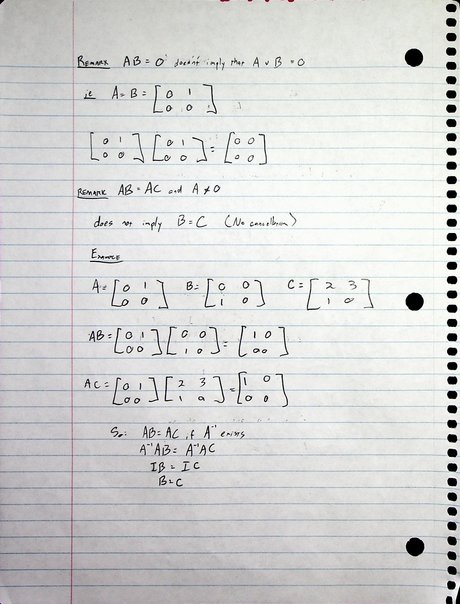 REMARK AB = 0 doesn't imply that A v B = 0
ie A = B = [0 1
0 0]
[0 1 [0 1 = [0 0
0 0] 0 0] 0 0]
REMARK AB = AC and A ≠ 0
does not imply B = C (No cancellation)
EXAMPLE
A = [0 1 B = [0 0 C = [2 3
0 0] 1 0] 1 0]
AB = [0 1 [0 0 = [1 0
0 0] 1 0] 0 0]
AC = [0 1 [2 3 = [1 0
0 0] 1 0] 0 0]
So: AB = AC if A⁻¹ exists
A⁻¹AB = A⁻¹AC
IB = IC
B = C